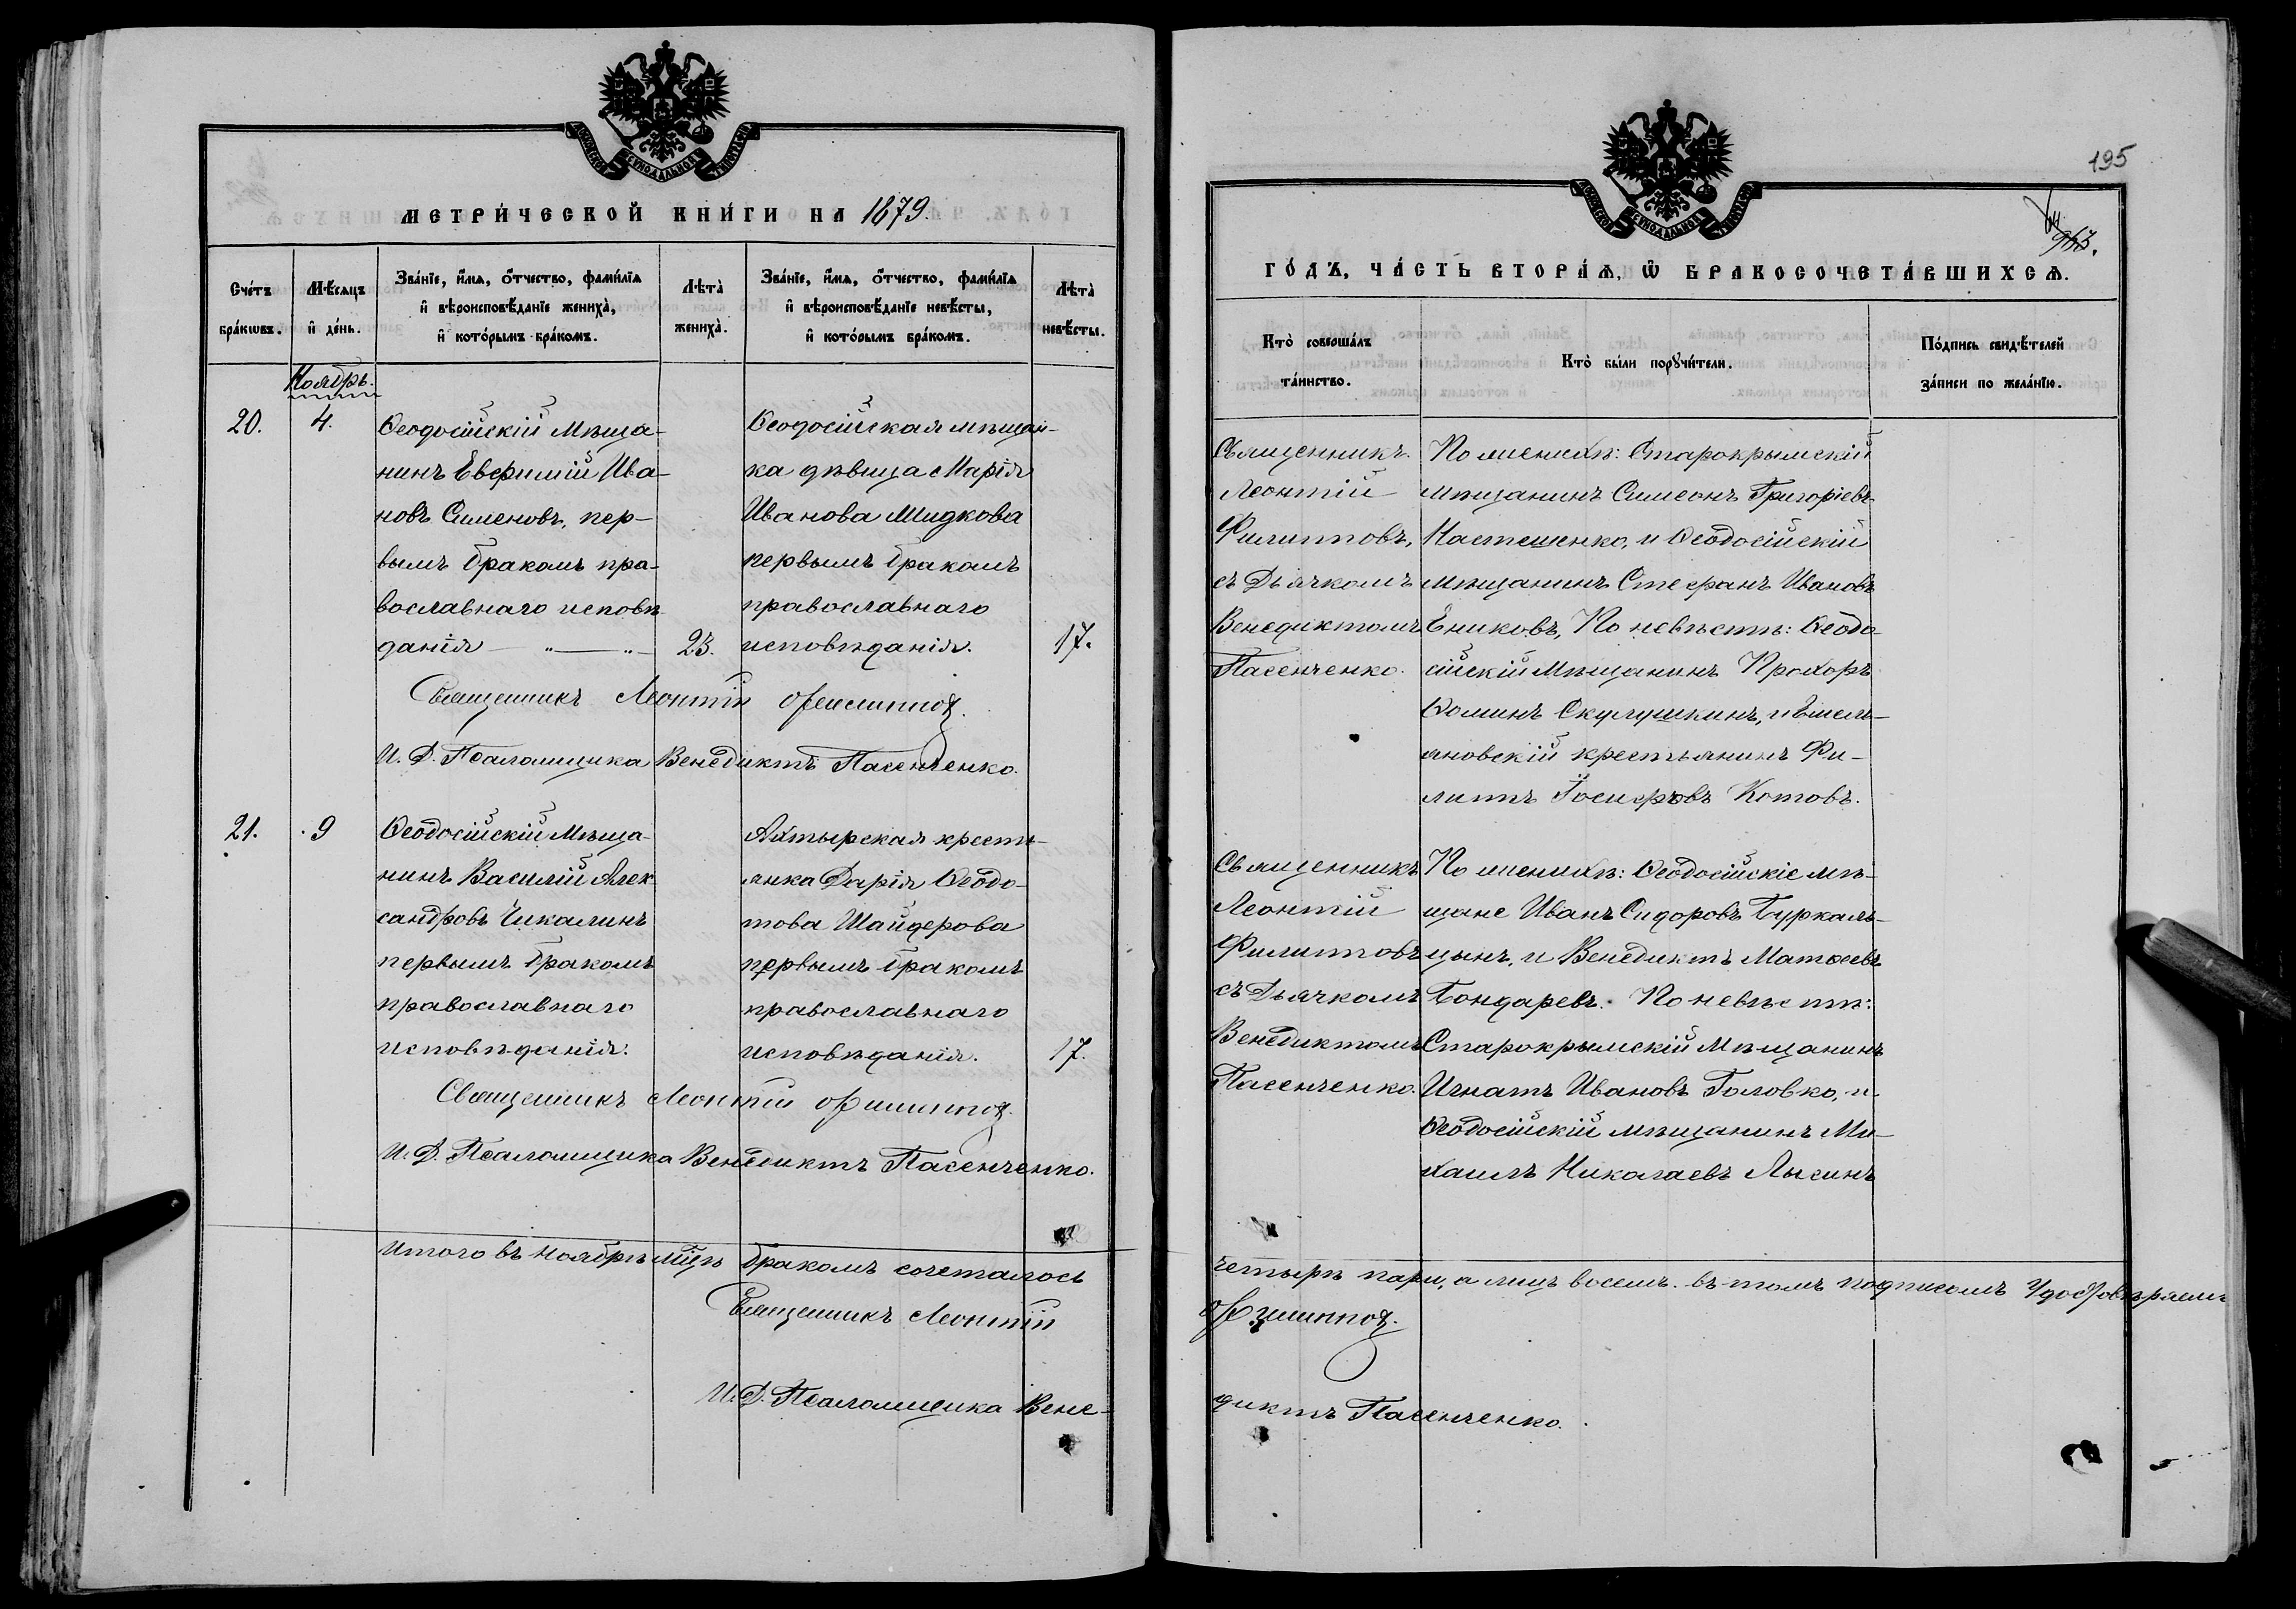 МОСКОВСКОЙ СѴНОДАЛЬНОЙ ТИПОГРАФІИ
МЕТРИ́ЧЕСКОЙ КНИ́ГИ НА 1879.
Сче́тъ бра́кѡвъ.
Мѣ́сяцъ и҆ де́нь.
Зва́нїе, и҆́мѧ, ѻ҆́тчество, фами́лїѧ
и҆ вѣроисповѣ́данїе жениха̀,
и҆ кото́рымъ бра́комъ.
Лѣта̀ жениха̀.
Зва́нїе, и҆́мѧ, ѻ҆́тчество, фами́лїѧ
и҆ вѣроисповѣ́данїе невѣ́сты,
и҆ кото́рымъ бра́комъ.
Лѣта̀ невѣ́сты.
Ноябрь.
20.
4.
Ѳеодосійскій Мѣща-
нинъ Евфимій Ива-
новъ Сименовъ, пер-
вымъ бракомъ пра-
вославнаго исповѣ
данія
23.
Ѳеодосійская мѣщан-
ка дѣвица Марія
Иванова Мидкова
первымъ бракомъ
православнаго
исповѣданія.
17.
Священникъ Леонтій Филипповъ.
И. Д. Псаломщика Венедиктъ Пасенченко.
21.
9
Ѳеодосійскій Мѣща-
нинъ Василій Алек
сандровъ Чикалинъ
первымъ бракомъ
православнаго
исповѣданія.
Ахтырская кресть-
янка Дарія Ѳеодо-
това Шайдерова
первымъ бракомъ
православнаго
исповѣданія.
17.
Священникъ Леонтій Филипповъ.
И. Д. Псаломщика Венедиктъ Пасенченко.
Итого въ ноябрѣ мѣцѣ бракомъ сочеталось
Священникъ Леонтій
И. Д. Псаломщика Вене-
195
МОСКОВСКОЙ СѴНОДАЛЬНОЙ ТИПОГРАФІИ
ГО́ДЪ, ЧА́СТЬ ВТОРА́Ѧ, Ѡ҆ БРАКОСОЧЕТА́ВШИХСѦ.
Кто̀ соверша́лъ
та́инство.
Кто̀ бы́ли порꙋчи́тели.
По́дпись свидѣ́телей
за́писи по жела́нїю.
Священникъ
Леонтій
Филипповъ,
съ Дьячкомъ
Венедиктомъ
Пасенченко.
По женихѣ: Старокрымскій
мѣщанинъ Симеонъ Григорьевъ
Настешенко, и Ѳеодосійскій
мѣщанинъ Стефанъ Ивановъ
Ениковъ, По невѣстѣ: Ѳеодо-
сійскій Мѣщанинъ Прохоръ
Ѳоминъ Скулушкинъ, и Емель-
яновскій крестьянинъ Фи-
липпъ Іосифовъ Котовъ.
Священникъ
Леонтій
Филипповъ
съ Дьячкомъ
Венедиктомъ
Пасенченко.
По женихѣ: Ѳеодосійскіе мѣ-
щане Иванъ Сидоровъ Буркаль-
цынъ, и Венедиктъ Матѳеевъ
Бондаревъ. По невѣстѣ:
Старокрымскій Мѣщанинъ
Игнатъ Ивановъ Головко, и
Ѳеодосійскій мѣщанинъ Ми-
хаилъ Николаевъ Лысинъ
четырѣ пары, а лицъ восемь. въ томъ подписомъ Удостовѣряемъ
Филипповъ.
диктъ Пасенченко.